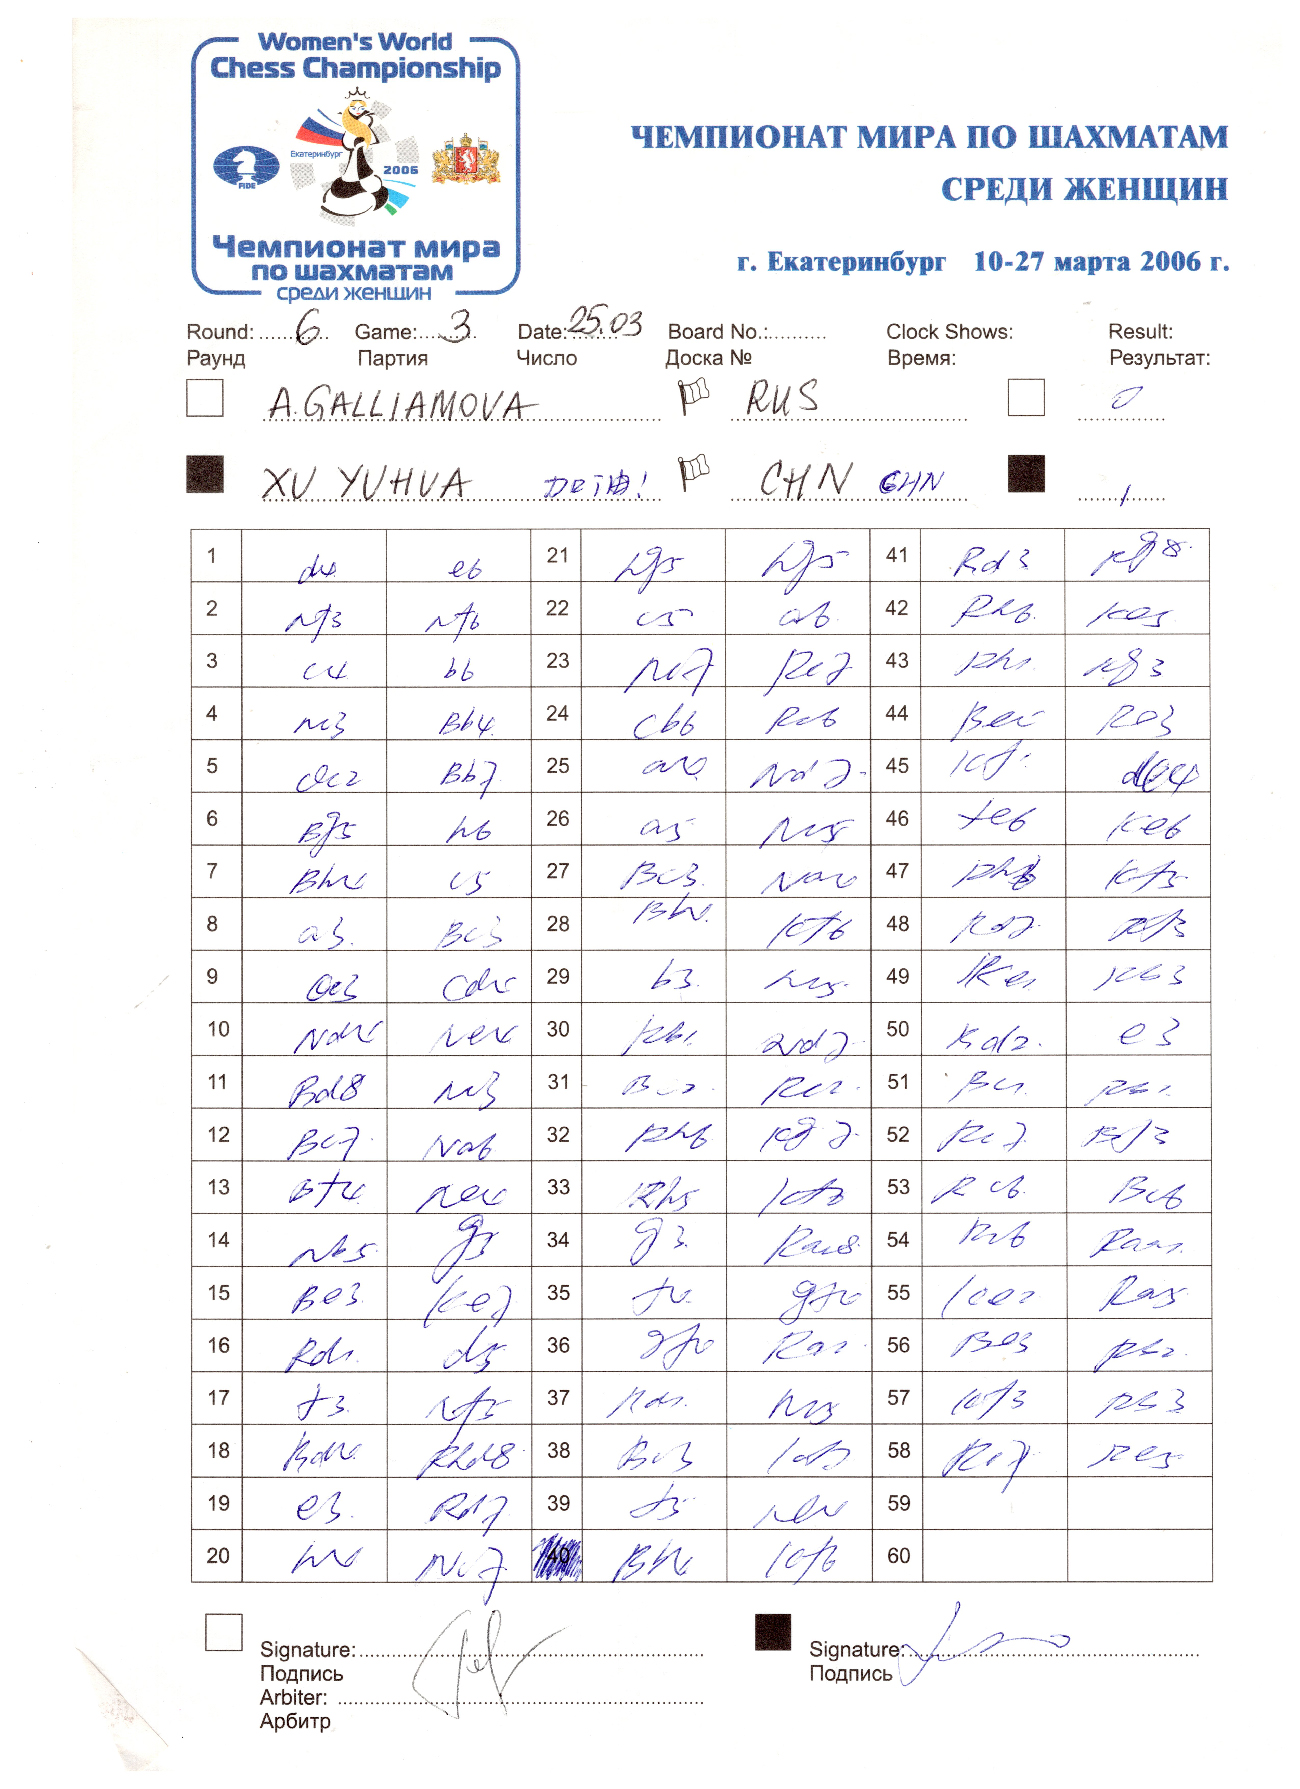 Women's World
Chess Championship
Екатеринбург
2006
FIDE
Чемпионат мира
по шахматам
среди женщин
ЧЕМПИОНАТ МИРА ПО ШАХМАТАМ
СРЕДИ ЖЕНЩИН
г. Екатеринбург 10-27 марта 2006 г.
Round: 6 Game: 3 Date: 25.03 Board No.: Clock Shows: Result:
Раунд Партия Число Доска № Время: Результат:
A. GALLIAMOVA RUS 0
XU YUHUA CHN CHN 1
1 d4 e6 21 hg5 hg5 41 Rd3 Kg8
2 Nf3 Nf6 22 c5 ab 42 Rh6 Ke5
3 c4 b6 23 Nc7 Rc7 43 Rh1 Kg3
4 Nc3 Bb4 24 cb6 Rc6 44 Be1 Re3
5 Qc2 Bb7 25 Nd7 45 Kf1
6 Bg5 h6 26 a5 Nc5 46 fe6 Ke6
7 Bh4 c5 27 Bc3 Na4 47 Kf5
8 a3 Bc3 28 Bb4 Kf6 48 Rd7
9 Qc3 cd4 29 b3 Nc5 49 Ke1 Rb3
10 Nd4 Ne4 30 Rb1 Nd7 50 Kd2 e3
11 Bd8 Nc3 31 Rc2 51 Bc1 Rb1
12 Bc7 Na6 32 Rh6 Kg7 52 Rc7 Kf3
13 Bf4 Ne4 33 Rh5 Kf6 53 Rc6 Bc6
14 Nb5 g5 34 g3 Rac8 54 Kc6 Raa1
15 Be3 Ke7 35 f4 gf4 55 Ke2 Ra5
16 Rd1 d5 36 gf4 Ra2 56 Be3 Rb2
17 f3 Nf5 37 Rd1 Nc5 57 Kf3 Rb3
18 Rd4 Rhd8 38 Bc3 58 Rc7 Re5
19 e3 Rd7 39 f5 Ne4 59
20 h4 Nc7 40 Bb4 Kf6 60
Signature: Signature:
Подпись Подпись
Arbiter:
Арбитр